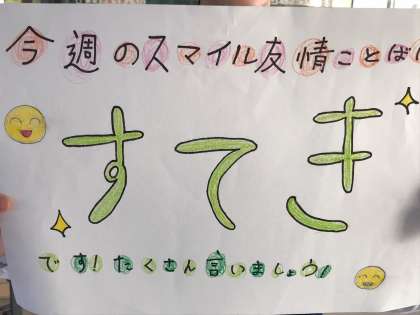 今週のスマイル友情ことばは
すてき
です!たくさん言いましょう!